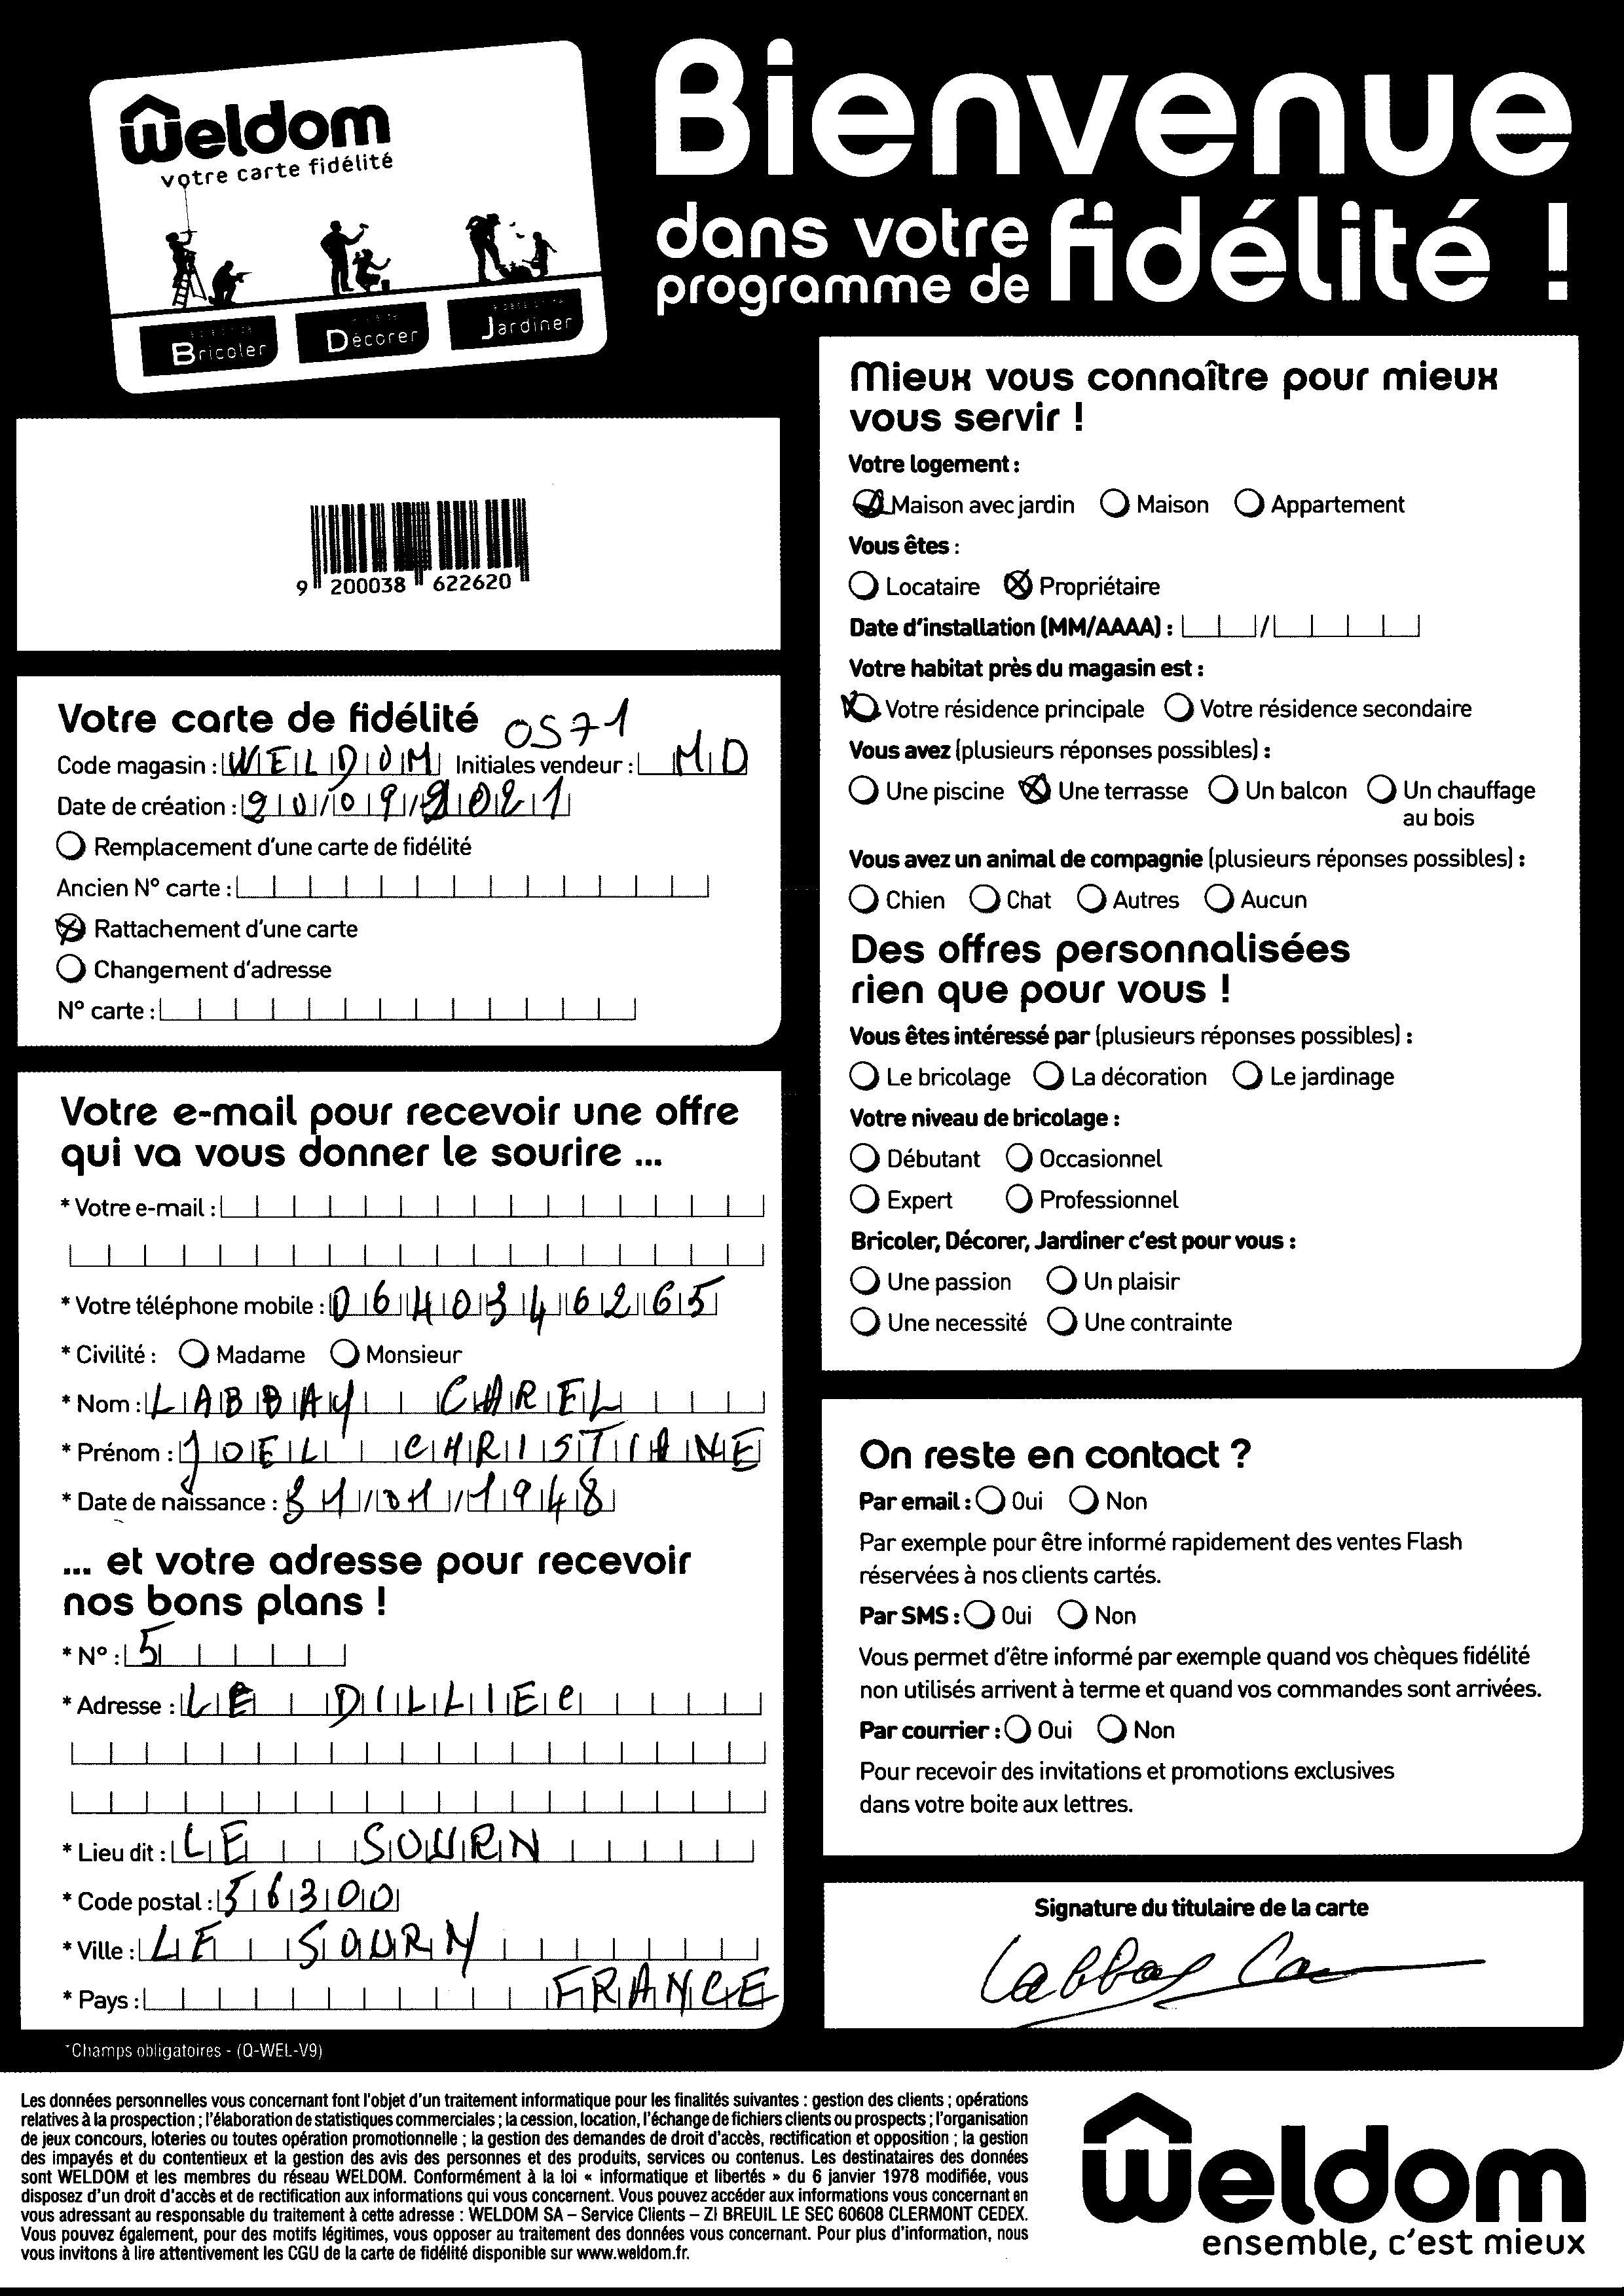 Weldom
votre carte fidélité
Bricoler
Décorer
Jardiner
Bienvenue
dans votre
programme de
fidélité !
9 200038 622620
Votre carte de fidélité
0571
Code magasin : WELDOM Initiales vendeur : MD
Date de création : 20/09/2021
Remplacement d'une carte de fidélité
Ancien N° carte :
Rattachement d'une carte
Changement d'adresse
N° carte :
Votre e-mail pour recevoir une offre
qui va vous donner le sourire ...
* Votre e-mail :
* Votre téléphone mobile : 0640346265
* Civilité : Madame Monsieur
* Nom : LABBAY CAREL
* Prénom : JOEL CHRISTIANE
* Date de naissance : 31/01/1948
... et votre adresse pour recevoir
nos bons plans !
* N° : 5
* Adresse : LE DILLIEC
* Lieu dit : LE SOURN
* Code postal : 56300
* Ville : LE SOURN
* Pays : FRANCE
*Champs obligatoires - (Q-WEL-V9)
Mieux vous connaître pour mieux
vous servir !
Votre logement :
Maison avec jardin Maison Appartement
Vous êtes :
Locataire Propriétaire
Date d'installation (MM/AAAA) : /
Votre habitat près du magasin est :
Votre résidence principale Votre résidence secondaire
Vous avez (plusieurs réponses possibles) :
Une piscine Une terrasse Un balcon Un chauffage
au bois
Vous avez un animal de compagnie (plusieurs réponses possibles) :
Chien Chat Autres Aucun
Des offres personnalisées
rien que pour vous !
Vous êtes intéressé par (plusieurs réponses possibles) :
Le bricolage La décoration Le jardinage
Votre niveau de bricolage :
Débutant Occasionnel
Expert Professionnel
Bricoler, Décorer, Jardiner c'est pour vous :
Une passion Un plaisir
Une necessité Une contrainte
On reste en contact ?
Par email : Oui Non
Par exemple pour être informé rapidement des ventes Flash
réservées à nos clients cartés.
Par SMS : Oui Non
Vous permet d'être informé par exemple quand vos chèques fidélité
non utilisés arrivent à terme et quand vos commandes sont arrivées.
Par courrier : Oui Non
Pour recevoir des invitations et promotions exclusives
dans votre boite aux lettres.
Signature du titulaire de la carte
Labbay
Les données personnelles vous concernant font l'objet d'un traitement informatique pour les finalités suivantes : gestion des clients ; opérations
relatives à la prospection ; l'élaboration de statistiques commerciales ; la cession, location, l'échange de fichiers clients ou prospects ; l'organisation
de jeux concours, loteries ou toutes opération promotionnelle ; la gestion des demandes de droit d'accès, rectification et opposition ; la gestion
des impayés et du contentieux et la gestion des avis des personnes et des produits, services ou contenus. Les destinataires des données
sont WELDOM et les membres du réseau WELDOM. Conformément à la loi « informatique et libertés » du 6 janvier 1978 modifiée, vous
disposez d'un droit d'accès et de rectification aux informations qui vous concernent. Vous pouvez accéder aux informations vous concernant en
vous adressant au responsable du traitement à cette adresse : WELDOM SA – Service Clients – ZI BREUIL LE SEC 60608 CLERMONT CEDEX.
Vous pouvez également, pour des motifs légitimes, vous opposer au traitement des données vous concernant. Pour plus d'information, nous
vous invitons à lire attentivement les CGU de la carte de fidélité disponible sur www.weldom.fr.
Weldom
ensemble, c'est mieux